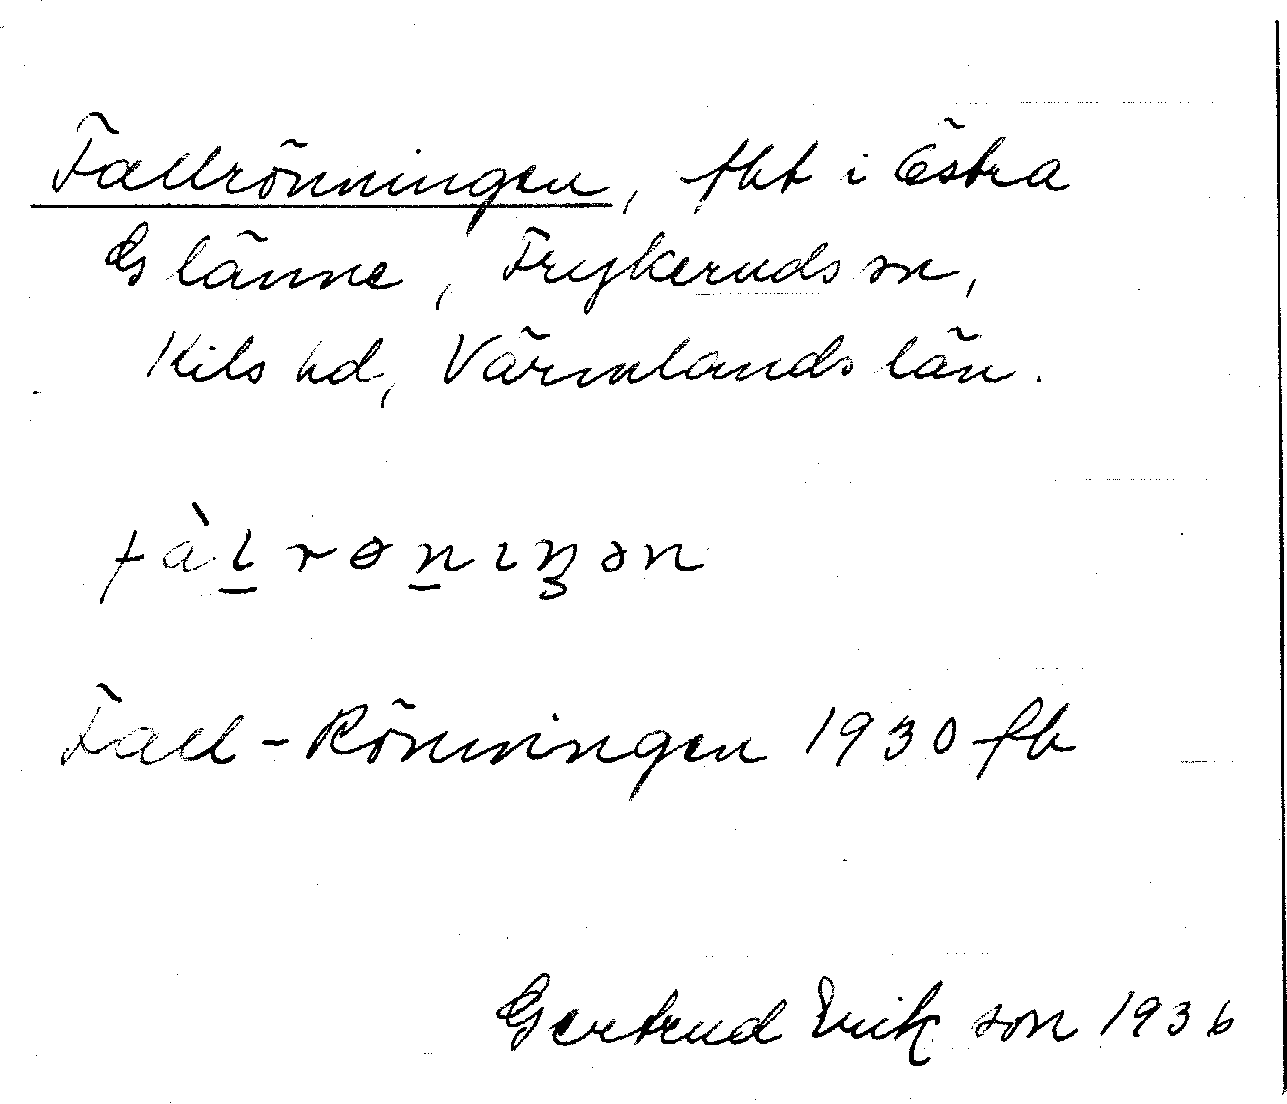 Fallrönningen, fht i Östra
Glänne, Frykeruds sn,
Kils hd, Värmlands län.
fàl̠rɵn̠ɩŋən
Fall-Rönningen 1930 fb
Gertrud Erikson 1936